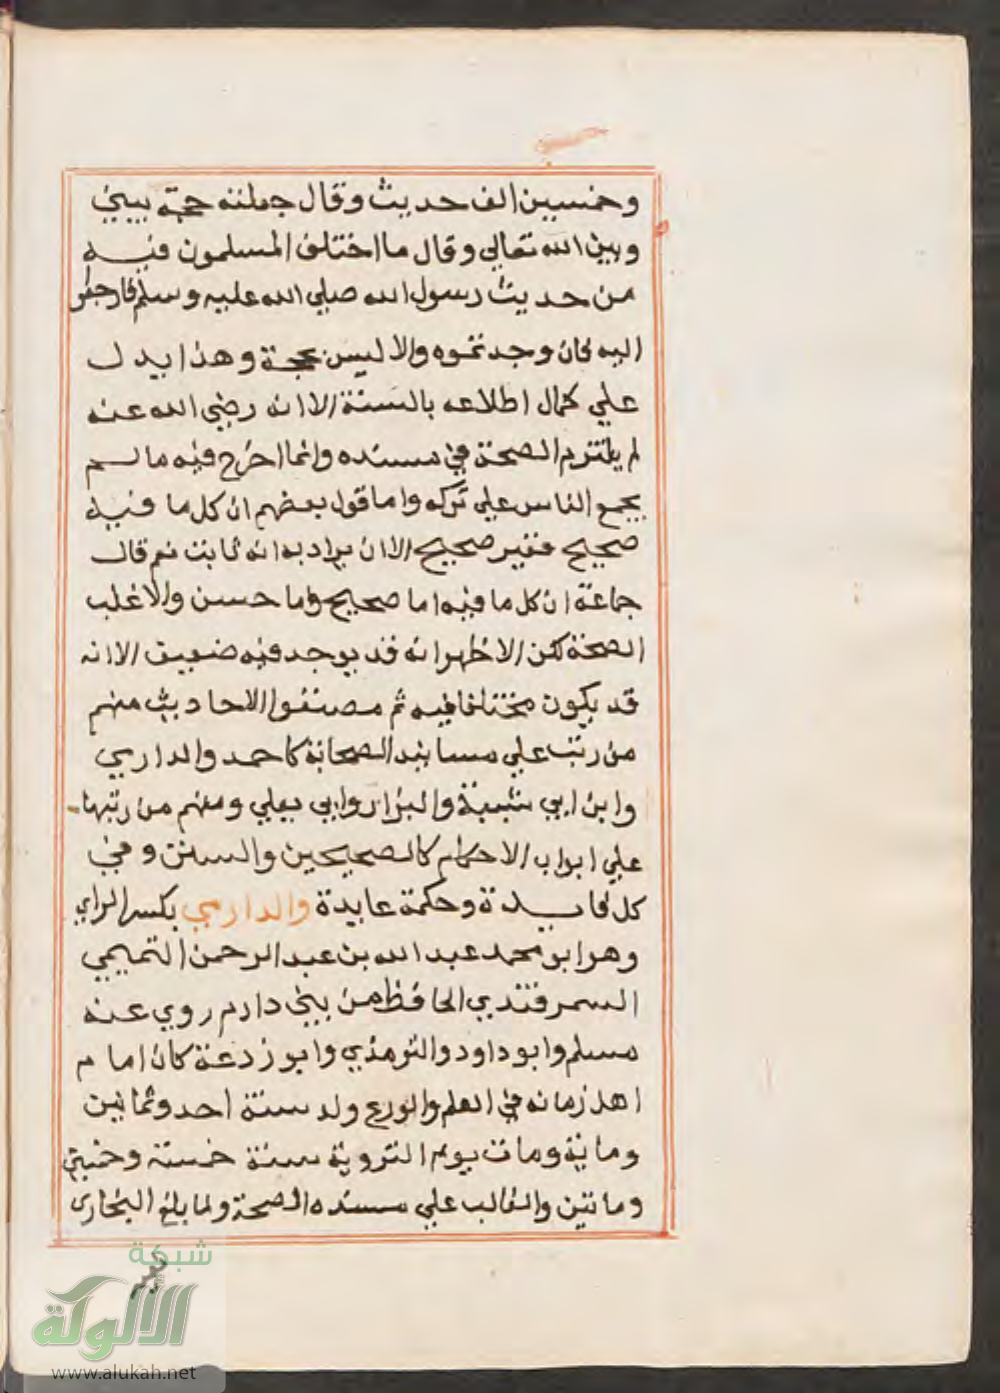 وخمسين الف حديث وقال جعلته حجة بيني
وبين الله تعالي وقال ما اختلف المسلمون فيه
من حديث رسول الله صلي الله عليه وسلم فارجعوا
اليه فان وجدتموه والا ليس بحجة وهذا يدل
علي كمال اطلاعه بالسنة الا انه رضي الله عنه
لم يلتزم الصحة في مسنده وانما اخرج فيه ما لم
يجمع الناس علي تركه واما قول بعضهم ان كل ما فيه
صحيح فغير صحيح الا ان يراد به انه ثابت نعم قال
جماعة ان كل ما فيه اما صحيح واما حسن والاغلب
الصحة لكن الاظهر انه قد يوجد فيه ضعيف الا انه
قد يكون مختلفا فيه ثم مصنفوا الاحاديث منهم
من رتب علي مسانيد الصحابة كاحمد والدارمي
وابن ابي شيبة والبزار وابي يعلي ومنهم من رتبها
علي ابواب الاحكام كالصحيحين والسنن وفي
كل فايدة وحكمة عايدة والدارمي بكسر الراي
وهو ابو محمد عبد الله بن عبد الرحمن التميمي
السمرقندي الحافظ من بني دارم روي عنه
مسلم وابو داود والترمذي وابو زرعة كان امام
اهل زمانه في العلم والورع ولد سنة احد وثمانين
وماية ومات يوم التروية سنة خمسة وخمسين
وماتين والغالب علي مسنده الصحة ولما بلغ البخاري
شبكة
الألوكة
www.alukah.net